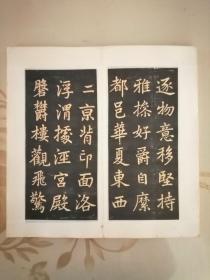 逐物意移堅持
雅操好爵自縻
都邑華夏東西
二京背邙面洛
浮渭據涇宮殿
磐欝樓觀飛驚